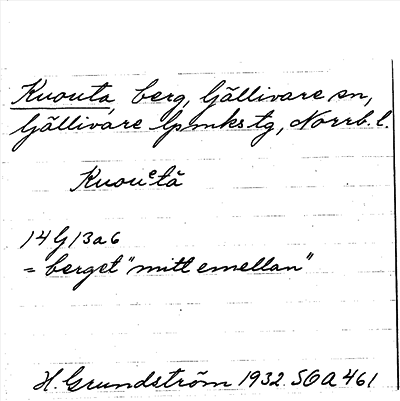 Kuouta, berg, Gällivare sn,
Gällivare lpmks tg, Norrb. l.
Kuouᵉtä
14 G 13 a 6
= berget "mitt emellan"
H. Grundström 1932. SOA 461